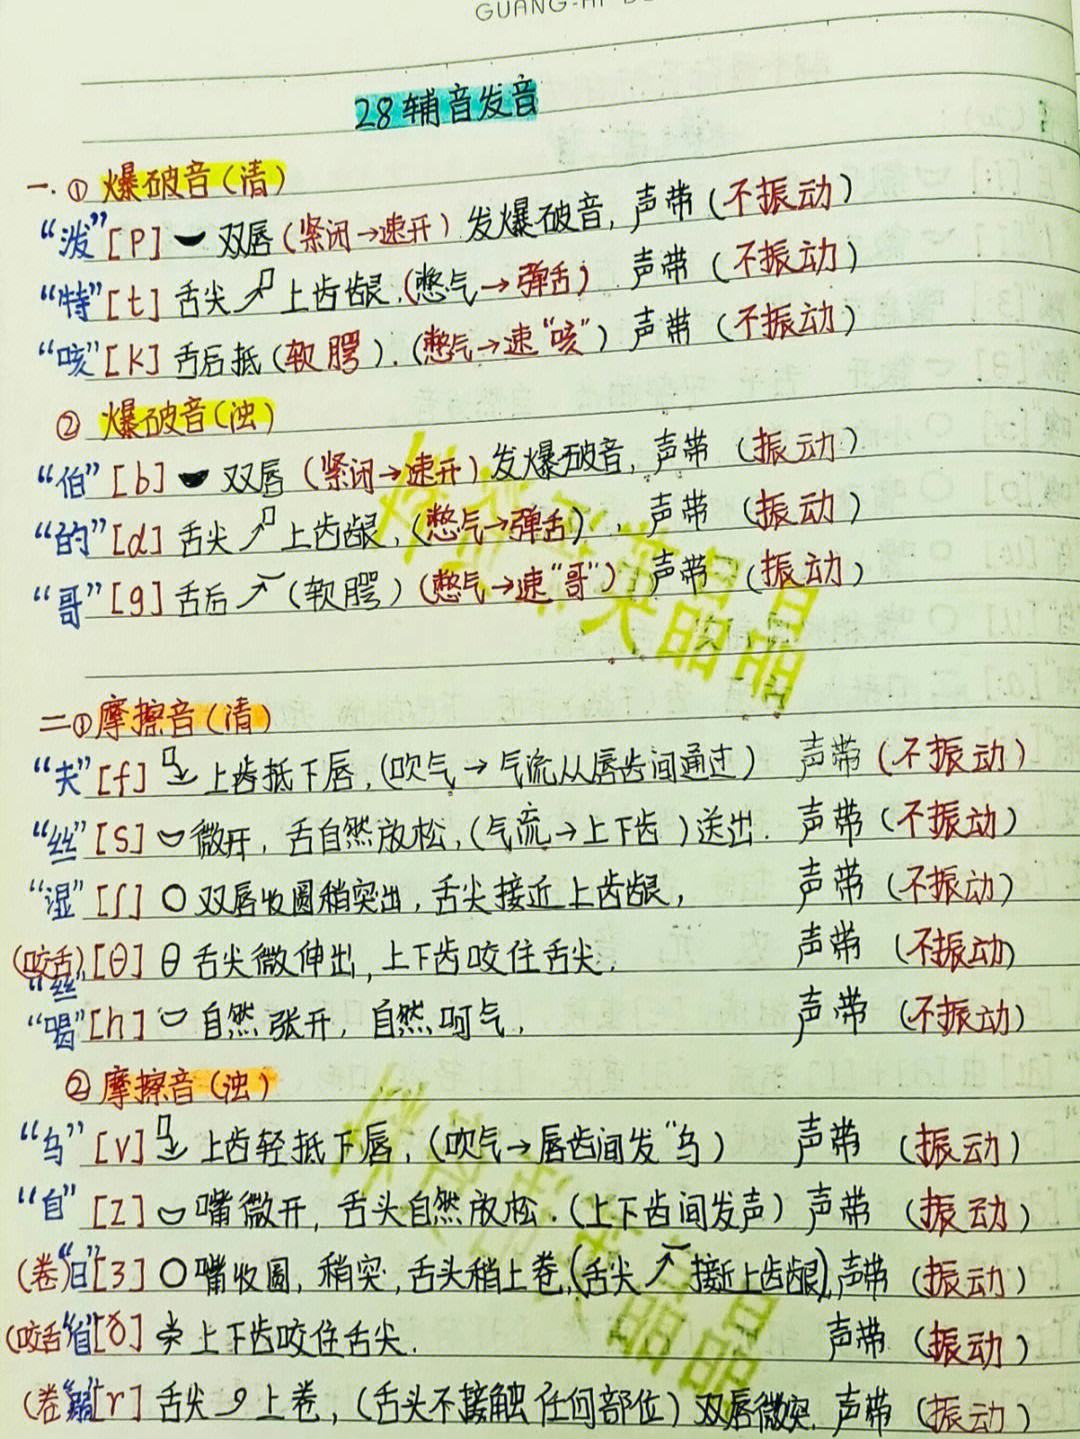 28辅音发音
一.① 爆破音(清)
“泼”[p] 双唇(紧闭→速开)发爆破音,声带(不振动)
“特”[t] 舌尖↗上齿龈.(憋气→弹舌) 声带(不振动)
“咳”[k] 舌后抵(软腭).(憋气→速“咳”) 声带(不振动)
② 爆破音(浊)
“伯”[b] 双唇(紧闭→速开)发爆破音,声带(振动)
“的”[d] 舌尖↗上齿龈,(憋气→弹舌),声带(振动)
“哥”[g] 舌后↗(软腭)(憋气→速“哥”) 声带(振动)
二① 摩擦音(清)
“夫”[f] 上齿抵下唇,(吹气→气流从唇齿间通过) 声带(不振动)
“丝”[s] 微开,舌自然放松,(气流→上下齿)送出. 声带(不振动)
“湿”[ʃ] 双唇收圆稍突出,舌尖接近上齿龈, 声带(不振动)
(咬舌)“丝”[θ] θ 舌尖微伸出,上下齿咬住舌尖. 声带(不振动)
“喝”[h] 自然张开,自然呵气, 声带(不振动)
② 摩擦音(浊)
“乌”[v] 上齿轻抵下唇,(吹气→唇齿间发“乌) 声带(振动)
“自”[z] 嘴微开,舌头自然放松.(上下齿间发声) 声带(振动)
(卷)“日”[ʒ] 嘴收圆,稍突,舌头稍上卷,(舌尖↗接近上齿龈),声带(振动)
(咬舌“自”[ð] 上下齿咬住舌尖. 声带(振动)
(卷[r] 舌尖上卷,(舌头不接触任何部位)双唇微突. 声带(振动)